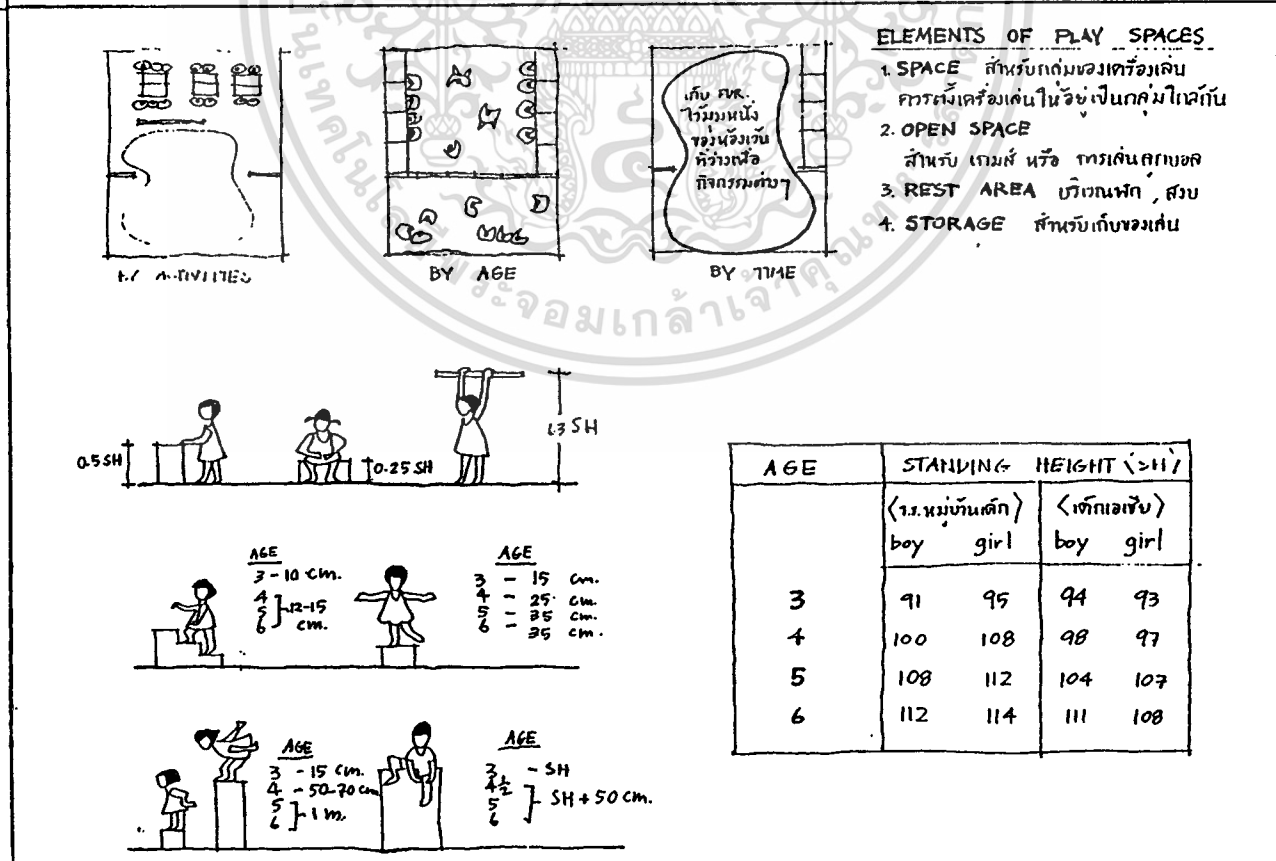 ELEMENTS OF PLAY SPACES
1. SPACE สำหรับกลุ่มของเครื่องเล่น
ควรตั้งเครื่องเล่นให้อยู่เป็นกลุ่มใกล้กัน
2. OPEN SPACE
สำหรับ เกมส์ หรือ การเล่นลูกบอล
3. REST AREA บริเวณพัก, สงบ
4. STORAGE สำหรับเก็บของเล่น
เก็บ FUR.
ไว้มุมหนึ่ง
ของห้องเว้น
ที่ว่างเพื่อ
กิจกรรมต่างๆ
BY ACTIVITIES
BY AGE
BY TIME
พระจอมเกล้าเจ้าคุณทหาร
0.5SH
0.25 SH
1.3 SH
AGE
3 - 10 cm.
4
5
6
12-15
cm.
AGE
3 - 15 cm.
4 - 25 cm.
5 - 35 cm.
6 - 35 cm.
AGE
3 - 15 cm.
4 - 50-70 cm
5
6
1 m.
AGE
3 - SH
4½
5
6
SH + 50 cm.
AGE STANDING HEIGHT (SH)
<ร.ร.หมู่บ้านเด็ก> <เด็กเอเซีย>
boy girl boy girl
3 91 95 94 93
4 100 108 98 97
5 108 112 104 107
6 112 114 111 108